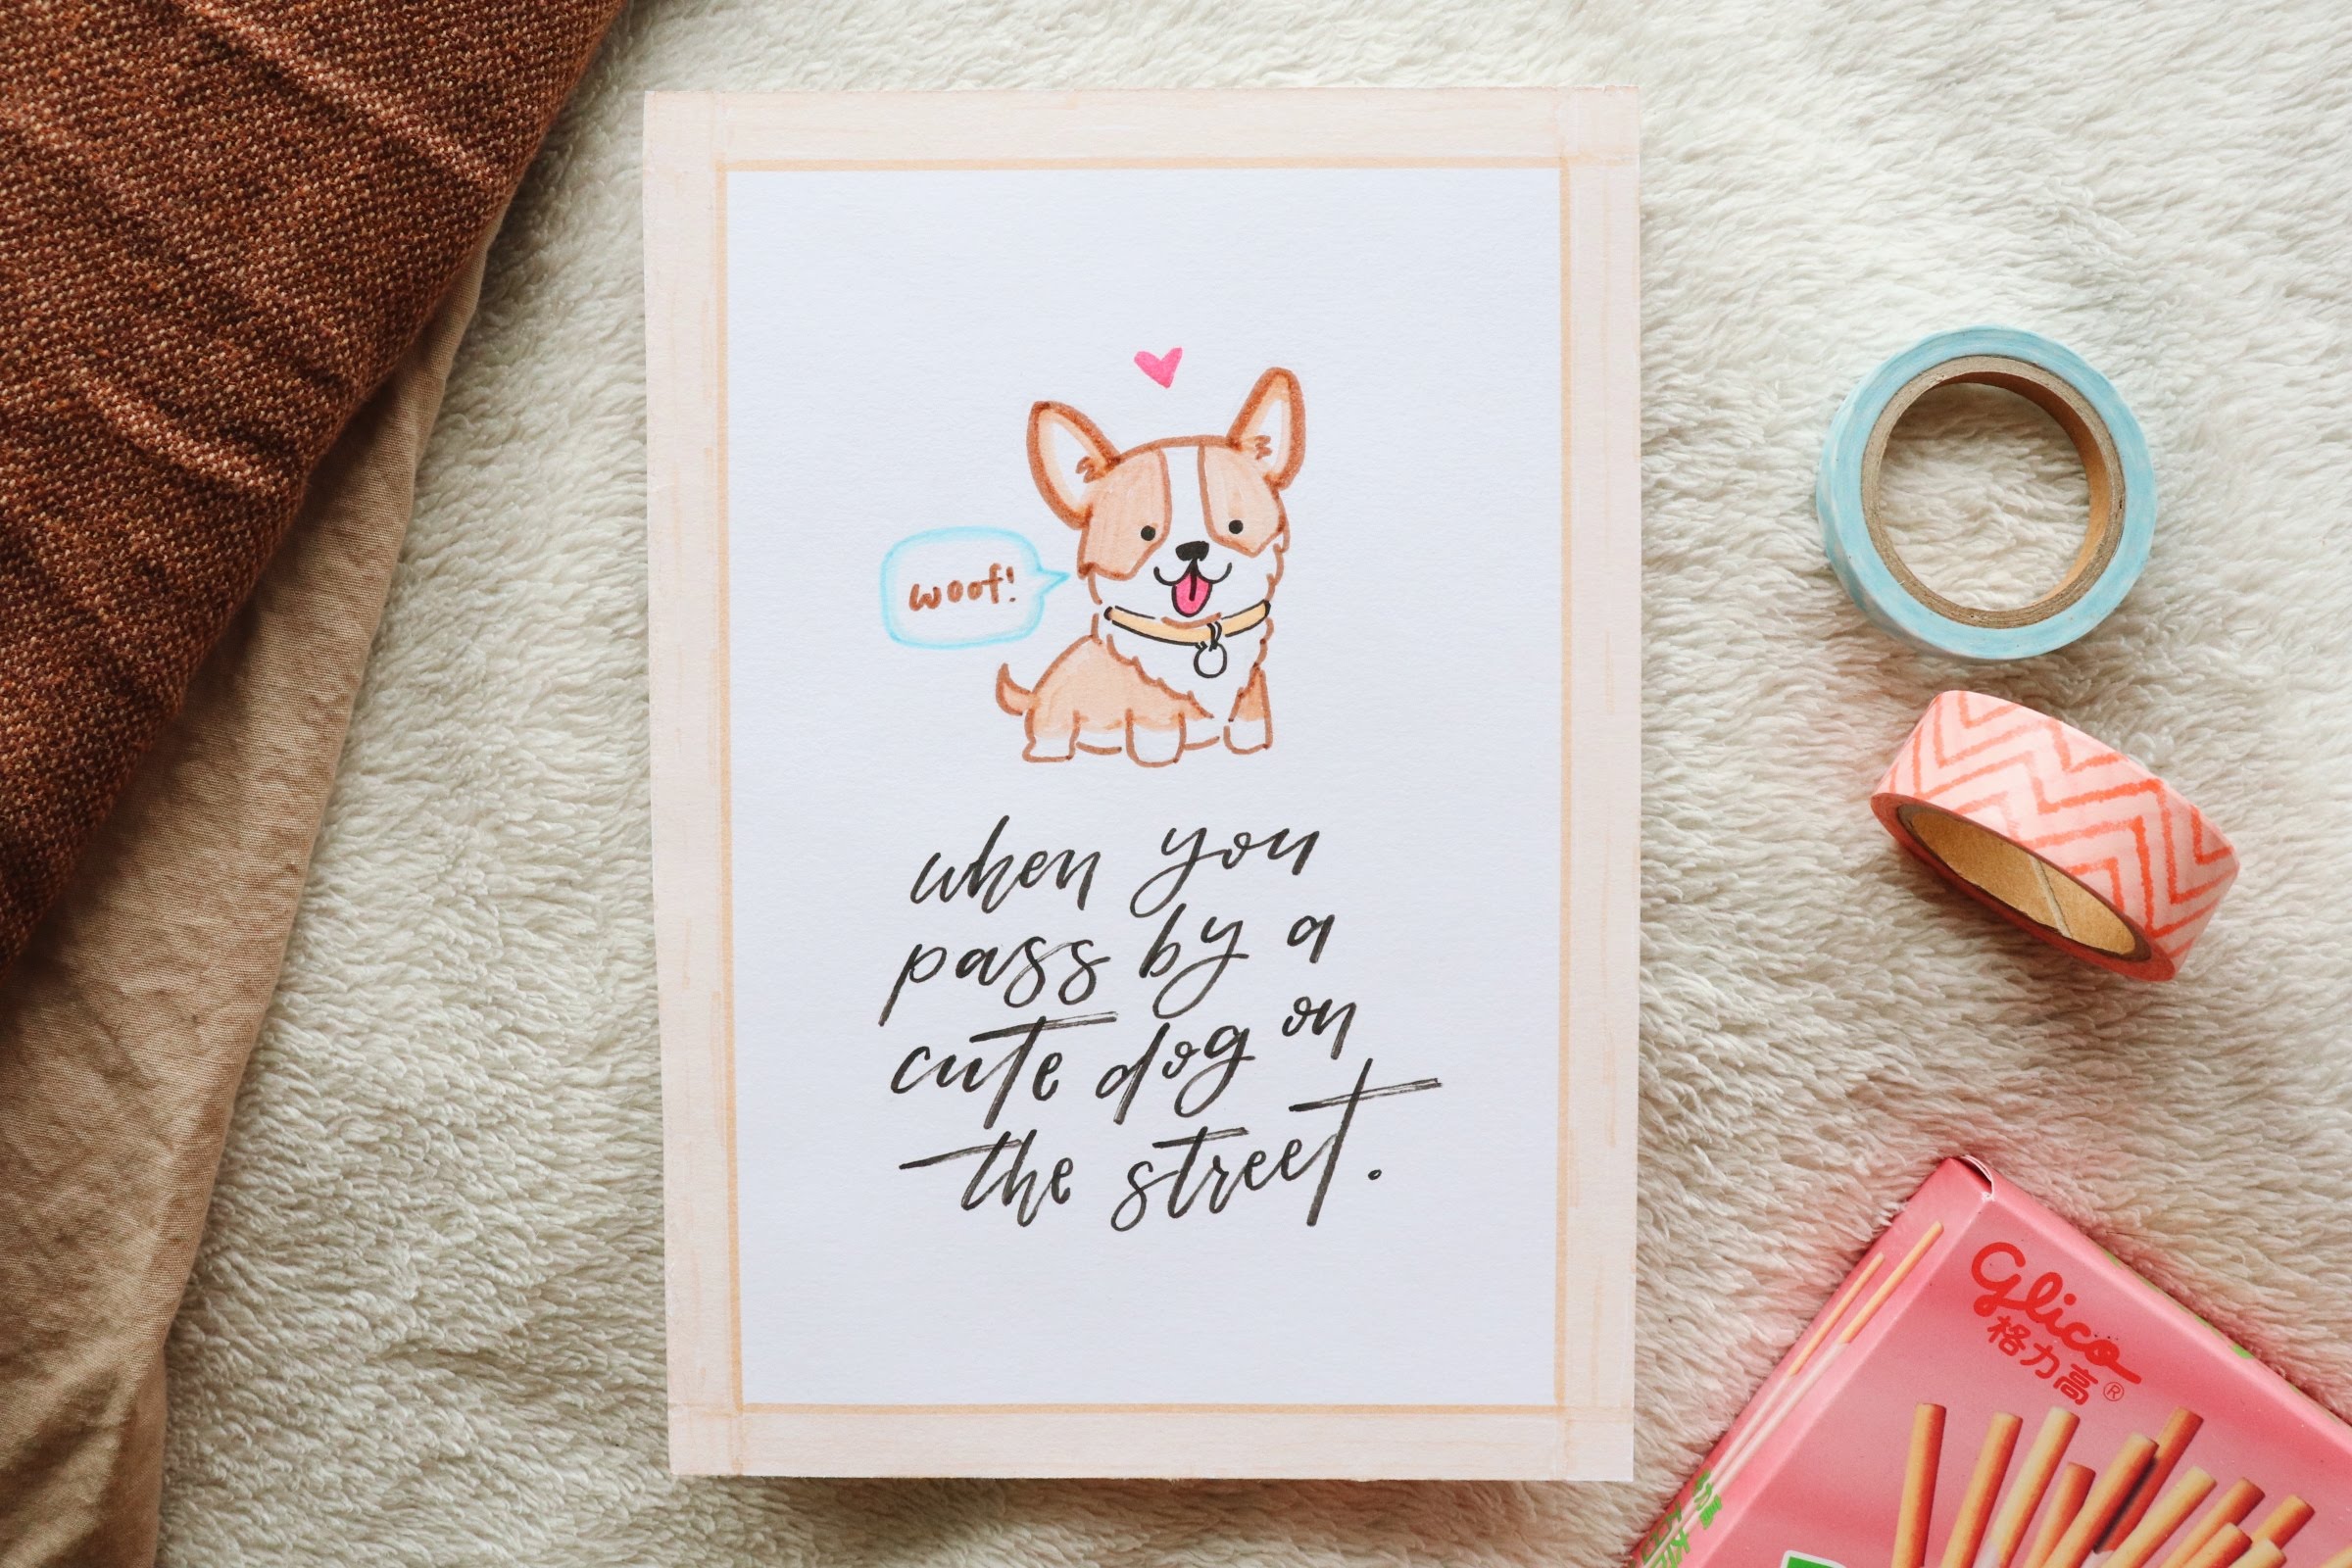 woof!
when you
pass by a
cute dog on
the street.
Glico
格力高®